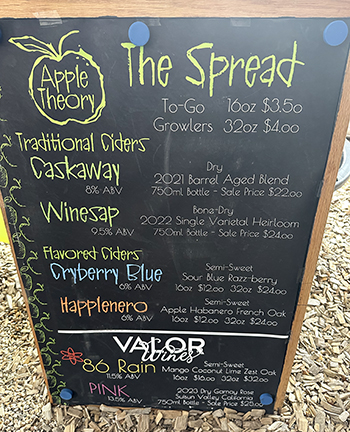 Apple
Theory
The Spread
To-Go 16oz $3.50
Growlers 32oz $4.00
Traditional Ciders
Caskaway
8% ABV
Dry
2021 Barrel Aged Blend
750ml Bottle - Sale Price $22.00
Winesap
9.5% ABV
Bone-Dry
2022 Single Varietal Heirloom
750ml Bottle - Sale Price $24.00
Flavored Ciders
Cryberry Blue
6% ABV
Semi-Sweet
Sour Blue Razz-berry
16oz $12.00 32oz $24.00
Happlenero
6% ABV
Semi-Sweet
Apple Habanero French Oak
16oz $12.00 32oz $24.00
VALOR
Wines
86 Rain
11.5% ABV
Semi-Sweet
Mango Coconut Lime Zest Oak
16oz $16.00 32oz $32.00
PINK
13.5% ABV
2023 Dry Gamay Rosé
Suisun Valley California
750ml Bottle - Sale Price $25.00